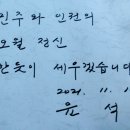 민주와 인권의
오월 정신
반듯이 세우겠습니다
2021. 11. 1
윤 석